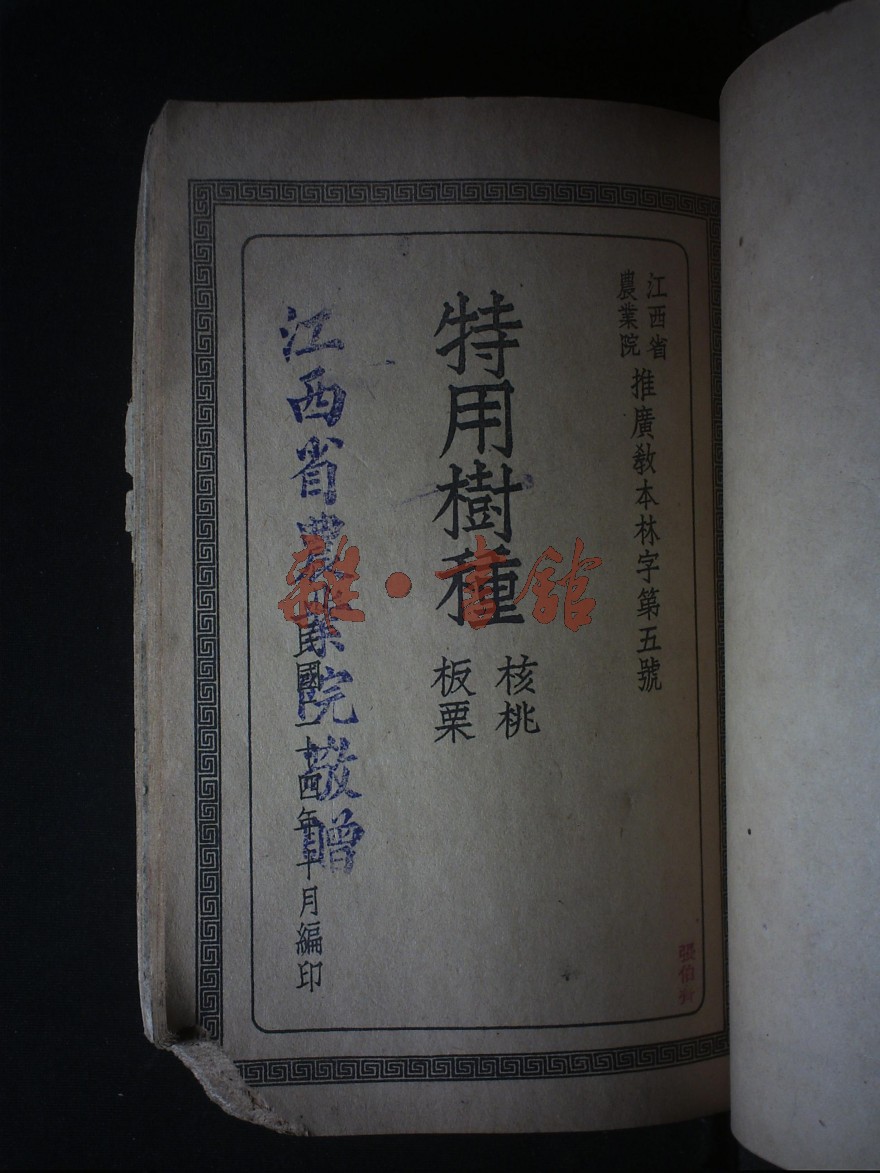 江西省
農業院
推廣教本林字第五號
特用樹種
核桃
板栗
民國二十四年十月編印
江西省農業院敬贈
雜·書館